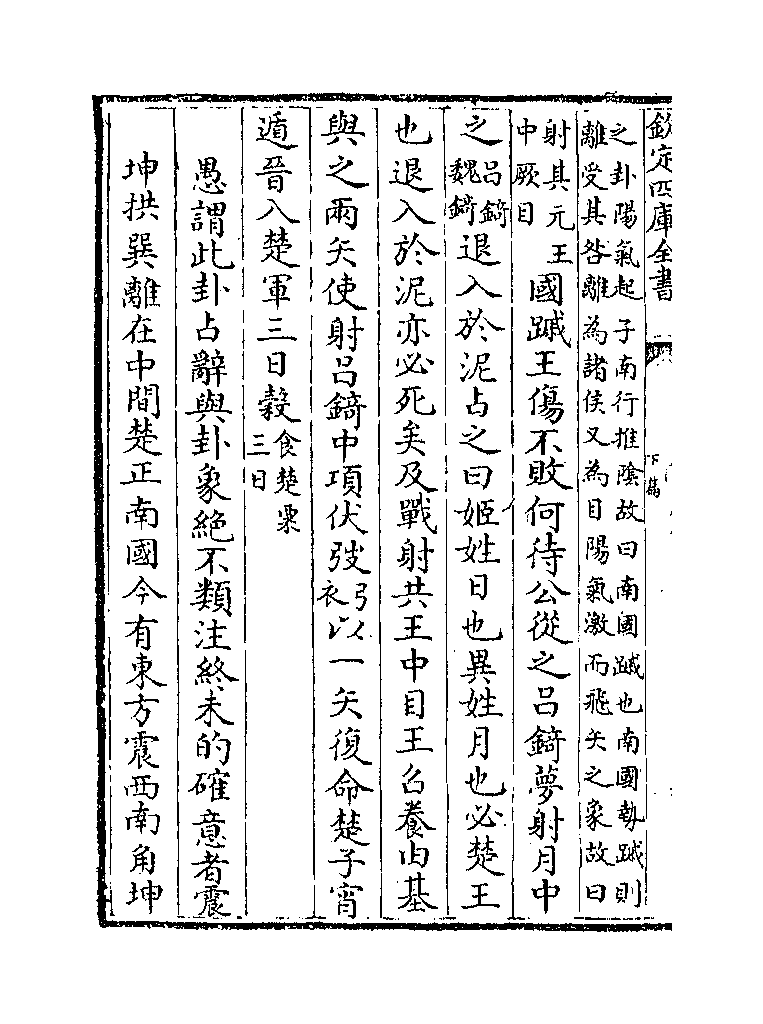 欽定四庫全書
下篇
之卦陽氣起子南行推陰故曰南國䠞也南國勢䠞則
離受其咎離為諸侯又為目陽氣激而飛矢之象故曰
射其元王
中厥目
國䠞王傷不敗何待公從之吕錡夢射月中
之
吕錡
魏錡
退入於泥占之曰姬姓日也異姓月也必楚王
也退入於泥亦必死矣及戰射共王中目王召養由基
與之兩矢使射吕錡中項伏弢
弓
衣
以一矢復命楚子宵
遁晉入楚軍三日穀
食楚粟
三日
愚謂此卦占辭與卦象絶不類注終未的確意者震
坤拱巽離在中間楚正南國今有東方震西南角坤